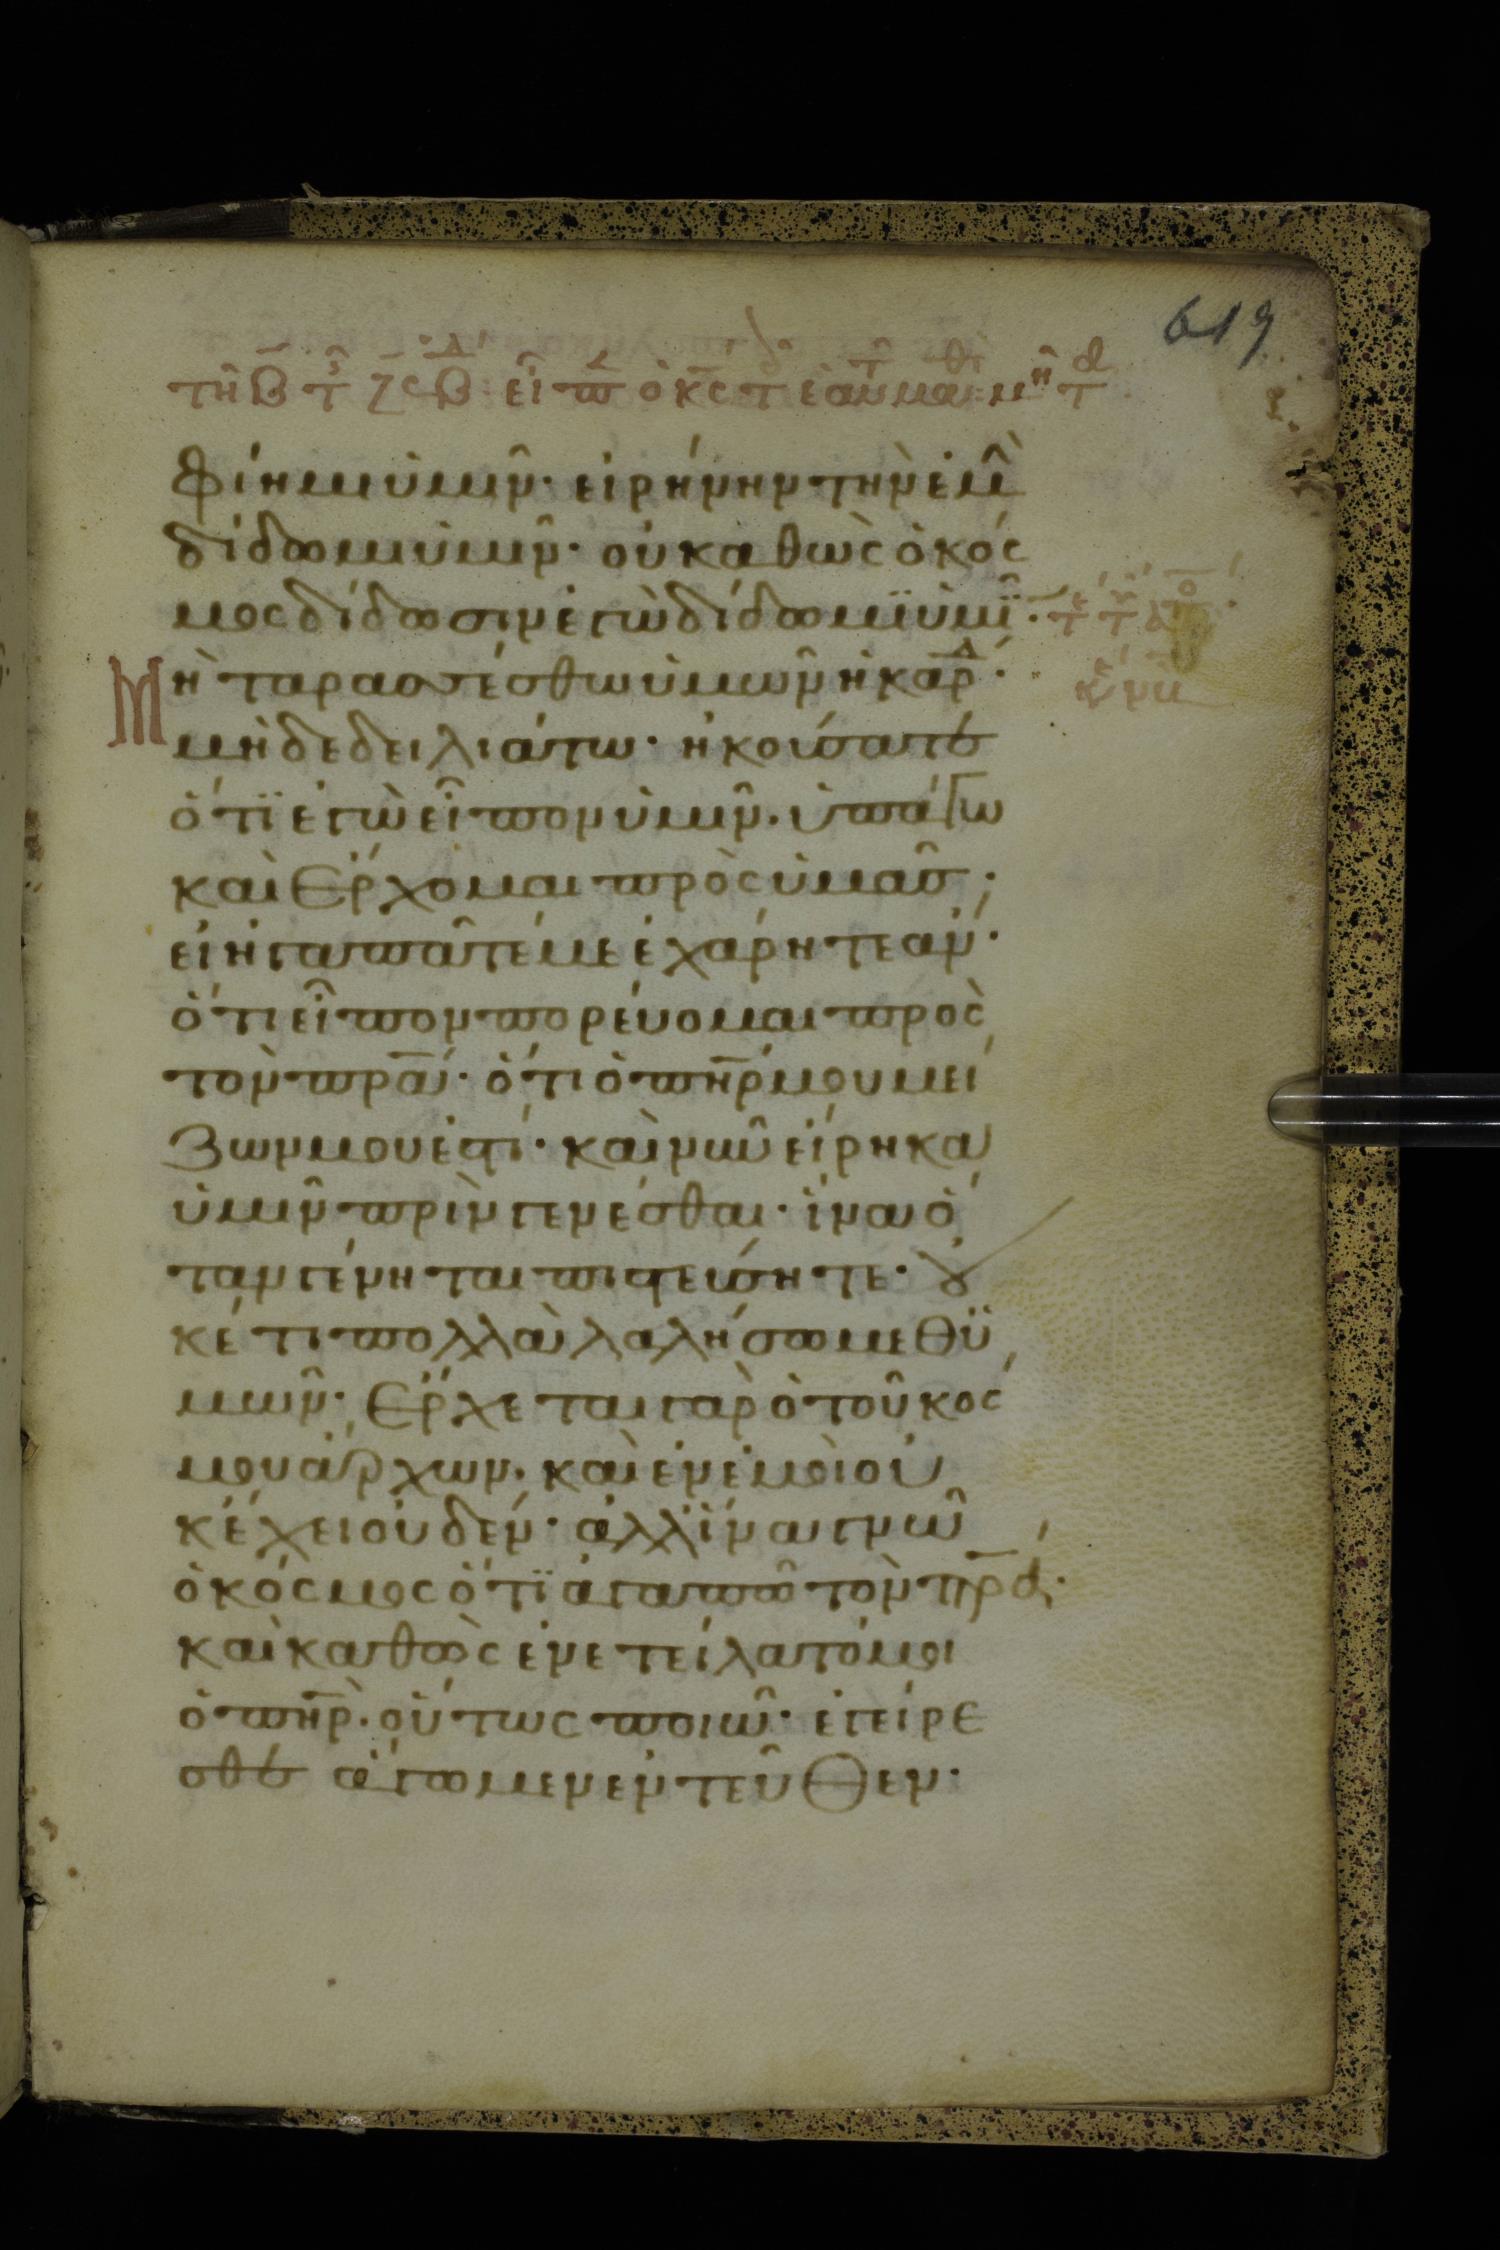 619
τῆ β τ ζ ς εβδ εἶπ ὁ κς τ ἑαυ μαθ μη τ
φίημι ὑμῖν· εἰρήνην τὴν ἐμὴ
δίδωμι ὑμῖν· οὐ καθὼς ὁ κόσ
μος δίδωσιν ἐγὼ δίδωμϊ ὑμῖ·
Μὴ ταρασσέσθω ὑμῶν ἡ καρδ·
μὴ δὲ δειλιάτω· ἠκούσατε
ὅτϊ ἐγὼ εἶπον ὑμῖν· ὑπάγω
καὶ ἔρχομαι πρὸς ὑμᾶς·
εἰ ἠγαπᾶτέ με ἐχάρητε ἄν·
ὅτι εἶπον πορεύομαι πρὸς
τὸν πρα· ὅτι ὁ πηρ μου μεί
ζων μου ἐστί· καὶ νῦν εἴρηκα
ὑμῖν πρὶν γενέσθαι· ἵνα ὅ
ταν γένηται πιστεύσητε· οὐ
κέτι πολλὰ λαλήσω μεθ ϋ
μῶν· Ἔρχεται γὰρ ὁ τοῦ κόσ
μου ἄρχων· καὶ ἐν ἐμοὶ οὐ
κ ἔχει οὐδέν· ἀλλ ἵνα γνῶ
ὁ κόσμος ὅτϊ ἀγαπῶ τὸν πρα·
καὶ καθὼς ἐνετείλατό μοι
ὁ πηρ· οὕτως ποιῶ· ἐγείρε
σθε ἄγωμεν ἐντεῦθεν·